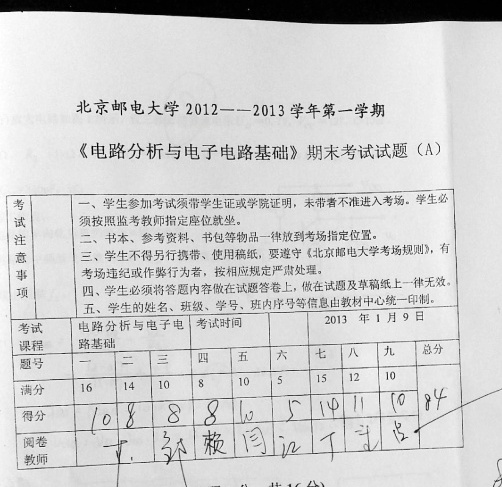 北京邮电大学 2012——2013 学年第一学期
《电路分析与电子电路基础》期末考试试题（A）
考试注意事项
一、学生参加考试须带学生证或学院证明，未带者不准进入考场。学生必
须按照监考教师指定座位就坐。
二、书本、参考资料、书包等物品一律放到考场指定位置。
三、学生不得另行携带、使用稿纸，要遵守《北京邮电大学考场规则》，有
考场违纪或作弊行为者，按相应规定严肃处理。
四、学生必须将答题内容做在试题答卷上，做在试题及草稿纸上一律无效。
五、学生的姓名、班级、学号、班内序号等信息由教材中心统一印制。
考试课程 电路分析与电子电路基础 考试时间 2013 年 1 月 9 日
题号 一 二 三 四 五 六 七 八 九 总分
满分 16 14 10 8 10 5 15 12 10
得分 10 8 8 8 10 5 14 11 10 84
阅卷教师 赖 闫 江 丁